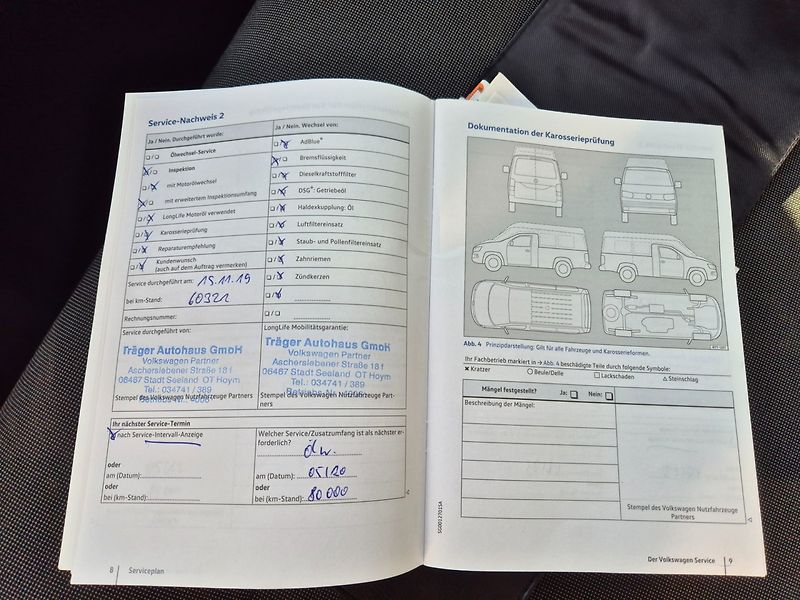 Service-Nachweis 2
Ja / Nein. Durchgeführt wurde:
Ölwechsel-Service
Inspektion
mit Motorölwechsel
mit erweitertem Inspektionsumfang
LongLife Motoröl verwendet
Karosserieprüfung
Reparaturempfehlung
Kundenwunsch
(auch auf dem Auftrag vermerken)
Service durchgeführt am: 15.11.19
bei km-Stand: 60321
Rechnungsnummer:
Service durchgeführt von:
Träger Autohaus GmbH
Volkswagen Partner
Ascherslebener Straße 181
06467 Stadt Seeland OT Hoym
Tel.: 034741 / 389
Stempel des Volkswagen Nutzfahrzeuge Partners
Ja / Nein. Wechsel von:
AdBlue®
Bremsflüssigkeit
Dieselkraftstofffilter
DSG®: Getriebeöl
Haldexkupplung: Öl
Luftfiltereinsatz
Staub- und Pollenfiltereinsatz
Zahnriemen
Zündkerzen
LongLife Mobilitätsgarantie:
Träger Autohaus GmbH
Volkswagen Partner
Ascherslebener Straße 181
06467 Stadt Seeland OT Hoym
Tel.: 034741 / 389
Stempel des Volkswagen Nutzfahrzeuge Part-
ners
Ihr nächster Service-Termin
nach Service-Intervall-Anzeige
oder
am (Datum):
oder
bei (km-Stand):
Welcher Service/Zusatzumfang ist als nächster er-
forderlich?
Ölw.
am (Datum): 05/20
oder
bei (km-Stand): 80 000
8 Serviceplan
Dokumentation der Karosserieprüfung
Abb. 4 Prinzipdarstellung: Gilt für alle Fahrzeuge und Karosserieformen.
Ihr Fachbetrieb markiert in → Abb. 4 beschädigte Teile durch folgende Symbole:
Kratzer Beule/Delle Lackschaden Steinschlag
Mängel festgestellt? Ja: Nein:
Beschreibung der Mängel:
Stempel des Volkswagen Nutzfahrzeuge
Partners
SG0012701SA
Der Volkswagen Service 9